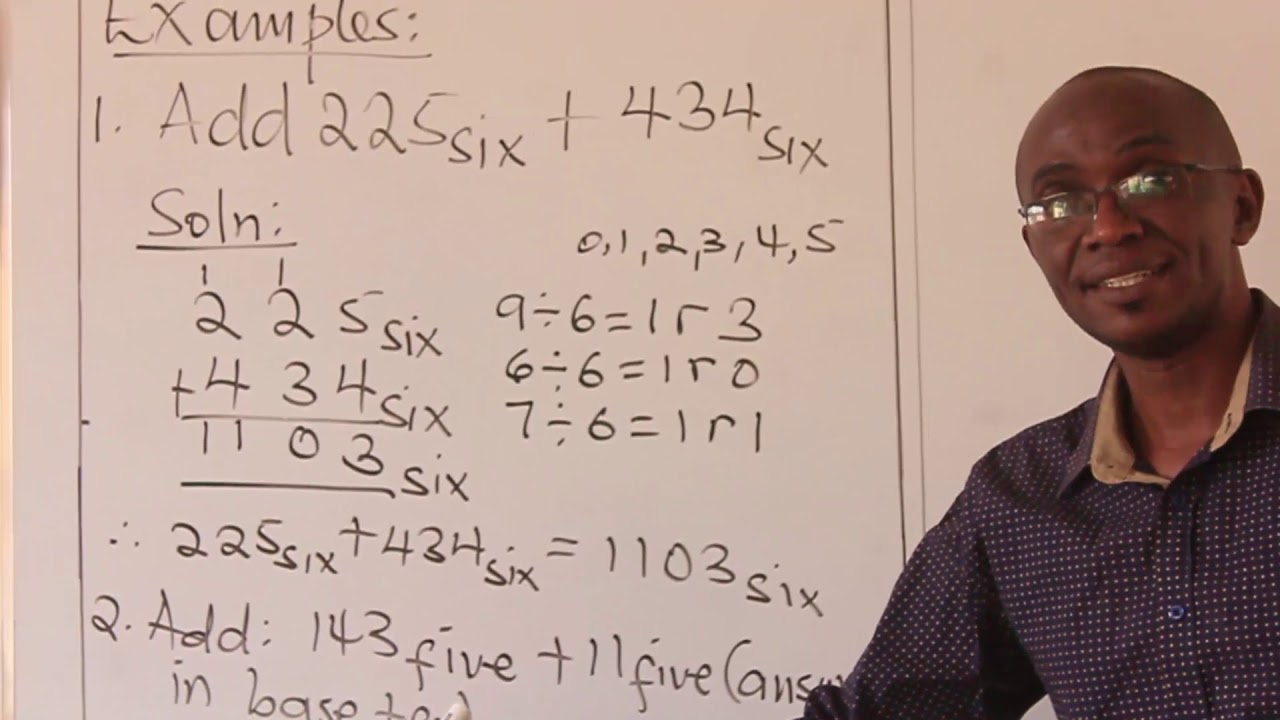 Examples:
1. Add 225six + 434six
Soln:
0,1,2,3,4,5
1 1
2 2 5six
+4 3 4six
11 0 3six
9÷6=1 r 3
6÷6=1 r 0
7÷6=1 r 1
∴ 225six+434six = 1103six
2. Add: 143five + 11five (
in base